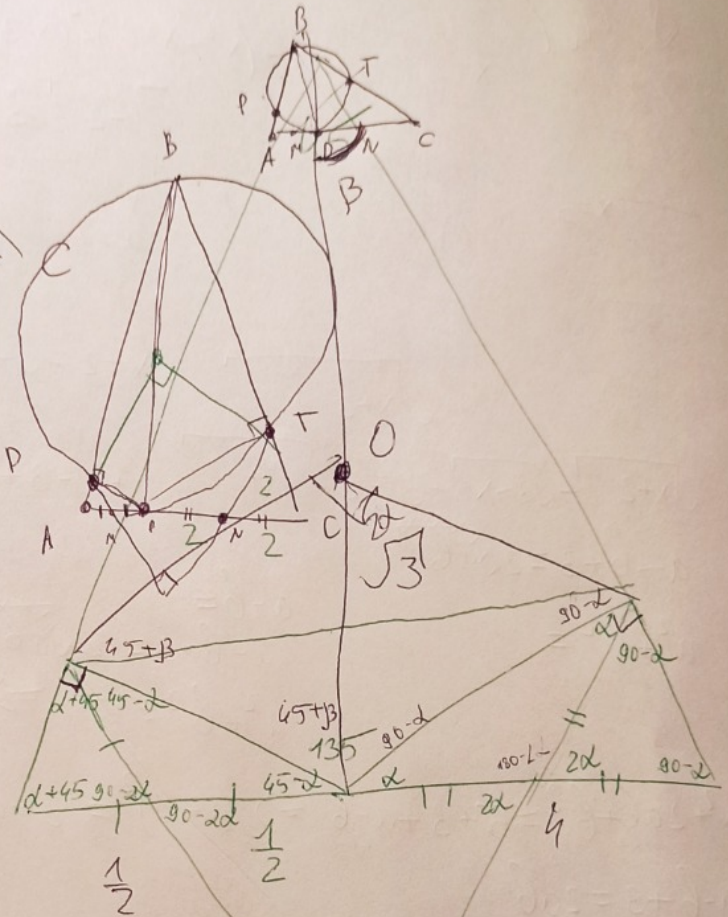 B
T
P
A M D N C
β
B
C
P
T
A M P N C
2
2 2
O
2α
√3
45+β
90-α
α
90-α
α+45 45-α
45+β
135
90-α
α+45 90-2α
90-2α
45-α
α
2α
2α
90-α
1/2
1/2
4